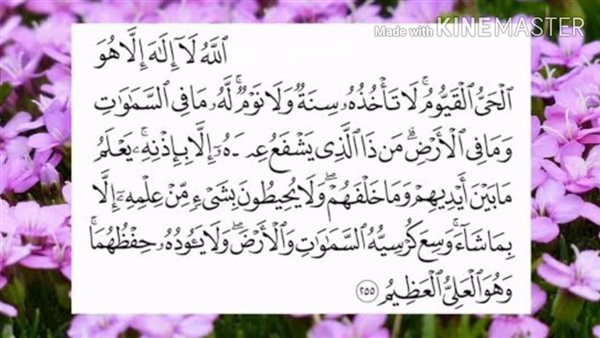 Made with KINEMASTER
ٱللَّهُ لَآ إِلَٰهَ إِلَّا هُوَ
ٱلْحَىُّ ٱلْقَيُّومُ ۚ لَا تَأْخُذُهُۥ سِنَةٌ وَلَا نَوْمٌ ۚ لَّهُۥ مَا فِى ٱلسَّمَٰوَٰتِ
وَمَا فِى ٱلْأَرْضِ ۗ مَن ذَا ٱلَّذِى يَشْفَعُ عِـ ـَدَهُۥٓ إِلَّا بِإِذْنِهِۦ ۚ يَعْلَمُ
مَا بَيْنَ أَيْدِيهِمْ وَمَا خَلْفَهُمْ ۖ وَلَا يُحِيطُونَ بِشَىْءٍ مِّنْ عِلْمِهِۦٓ إِلَّا
بِمَا شَآءَ ۚ وَسِعَ كُرْسِيُّهُ ٱلسَّمَٰوَٰتِ وَٱلْأَرْضَ ۖ وَلَا يَـُٔودُهُۥ حِفْظُهُمَا ۚ
وَهُوَ ٱلْعَلِىُّ ٱلْعَظِيمُ ٢٥٥